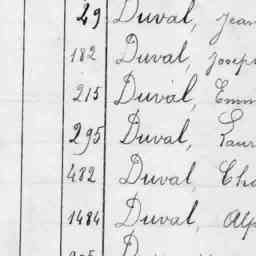 29 Duval, Jean
182 Duval, Joseph
215 Duval, Emm
295 Duval, Laur
482 Duval, Cha
1484 Duval, Alp